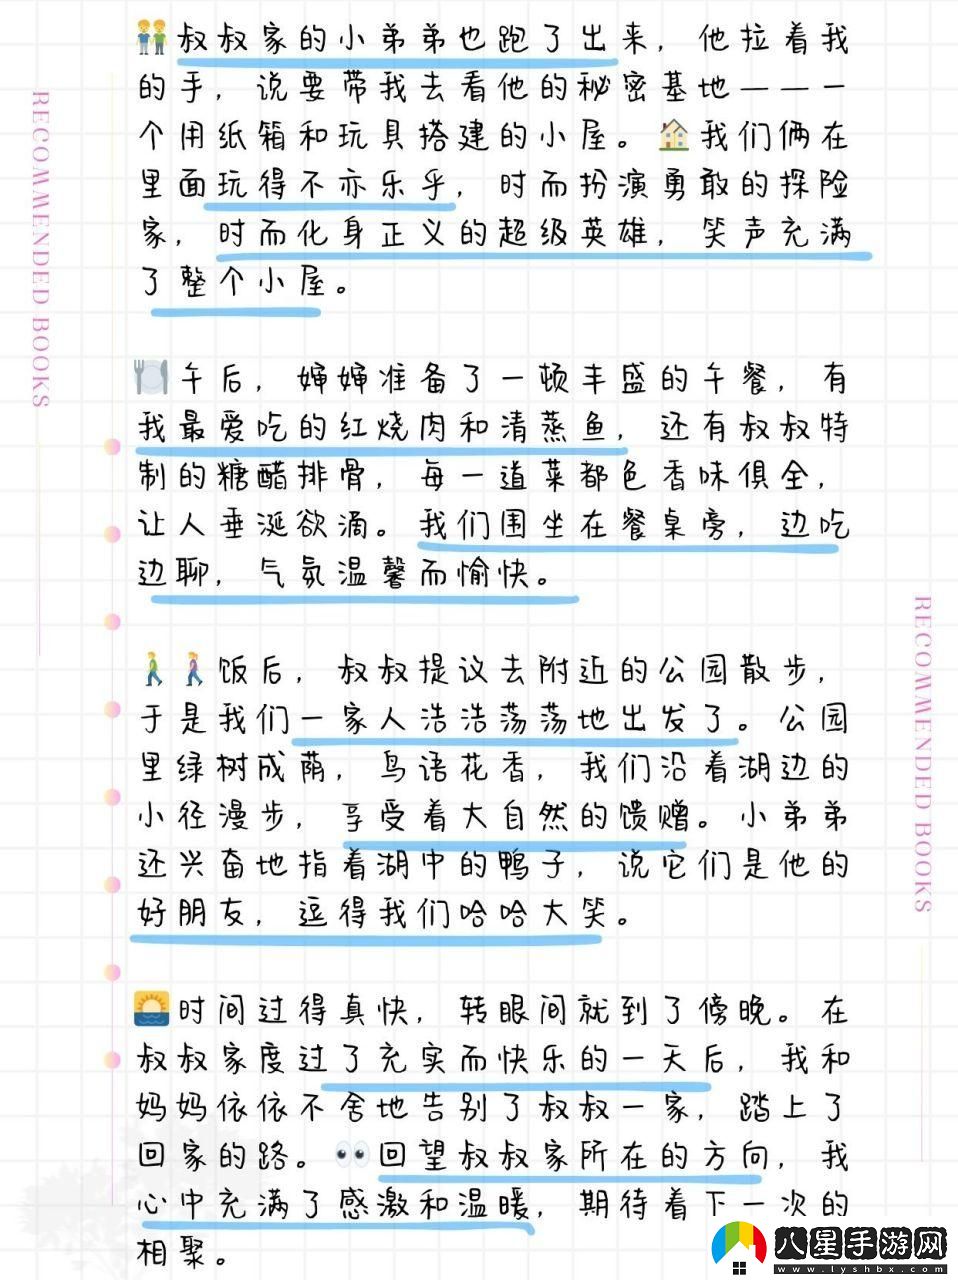 叔叔家的小弟弟也跑了出来，他拉着我
的手，说要带我去看他的秘密基地——一
个用纸箱和玩具搭建的小屋。我们俩在
里面玩得不亦乐乎，时而扮演勇敢的探险
家，时而化身正义的超级英雄，笑声充满
了整个小屋。
午后，婶婶准备了一顿丰盛的午餐，有
我最爱吃的红烧肉和清蒸鱼，还有叔叔特
制的糖醋排骨，每一道菜都色香味俱全，
让人垂涎欲滴。我们围坐在餐桌旁，边吃
边聊，气氛温馨而愉快。
饭后，叔叔提议去附近的公园散步，
于是我们一家人浩浩荡荡地出发了。公园
里绿树成荫，鸟语花香，我们沿着湖边的
小径漫步，享受着大自然的馈赠。小弟弟
还兴奋地指着湖中的鸭子，说它们是他的
好朋友，逗得我们哈哈大笑。
时间过得真快，转眼间就到了傍晚。在
叔叔家度过了充实而快乐的一天后，我和
妈妈依依不舍地告别了叔叔一家，踏上了
回家的路。回望叔叔家所在的方向，我
心中充满了感激和温暖，期待着下一次的
相聚。
RECOMMENDED BOOKS
RECOMMENDED BOOKS
八星手游网
www.lyshbx.com